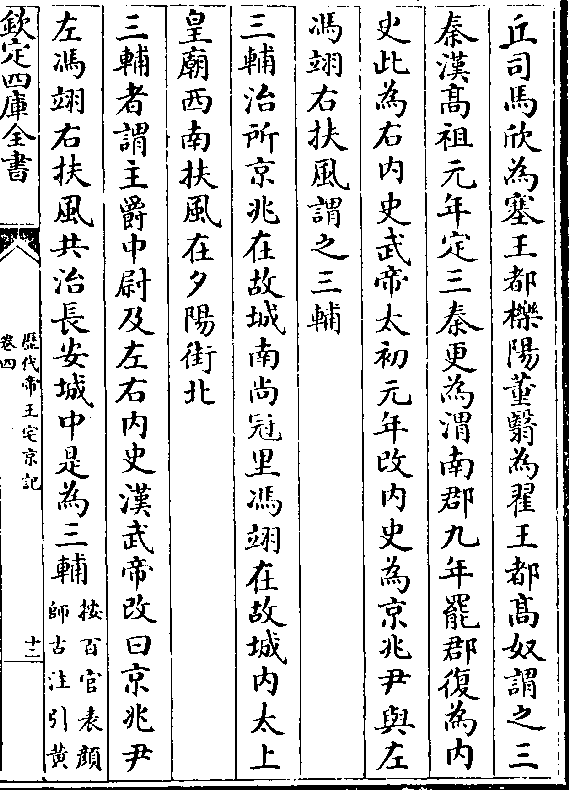 丘司馬欣為塞王都櫟陽董翳為翟王都髙奴謂之三
秦漢髙祖元年定三秦更為渭南郡九年罷郡復為内
史此為右内史武帝太初元年改内史為京兆尹與左
馮翊右扶風謂之三輔
三輔治所京兆在故城南尚冠里馮翊在故城内太上
皇廟西南扶風在夕陽街北
三輔者謂主爵中尉及左右内史漢武帝改曰京兆尹
左馮翊右扶風共治長安城中是為三輔
按百官表顔
師古注引黄
欽定四庫全書
歴代帝王宅京記
卷四
十二